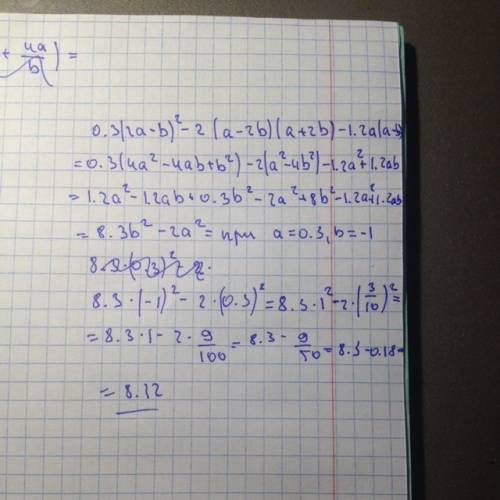 + 4a/b) =
0.3(2a-b)² - 2(a-2b)(a+2b) - 1.2a(a-b)
= 0.3(4a² - 4ab + b²) - 2(a² - 4b²) - 1.2a² + 1.2ab
= 1.2a² - 1.2ab + 0.3b² - 2a² + 8b² - 1.2a² + 1.2ab
= 8.3b² - 2a² = при a = 0.3, b = -1
8.3 · (-1)² - 2 · (0.3)² = 8.3 · 1² - 2 · (3/10)² =
= 8.3 · 1 - 2 · 9/100 = 8.3 - 9/50 = 8.3 - 0.18 =
= 8.12